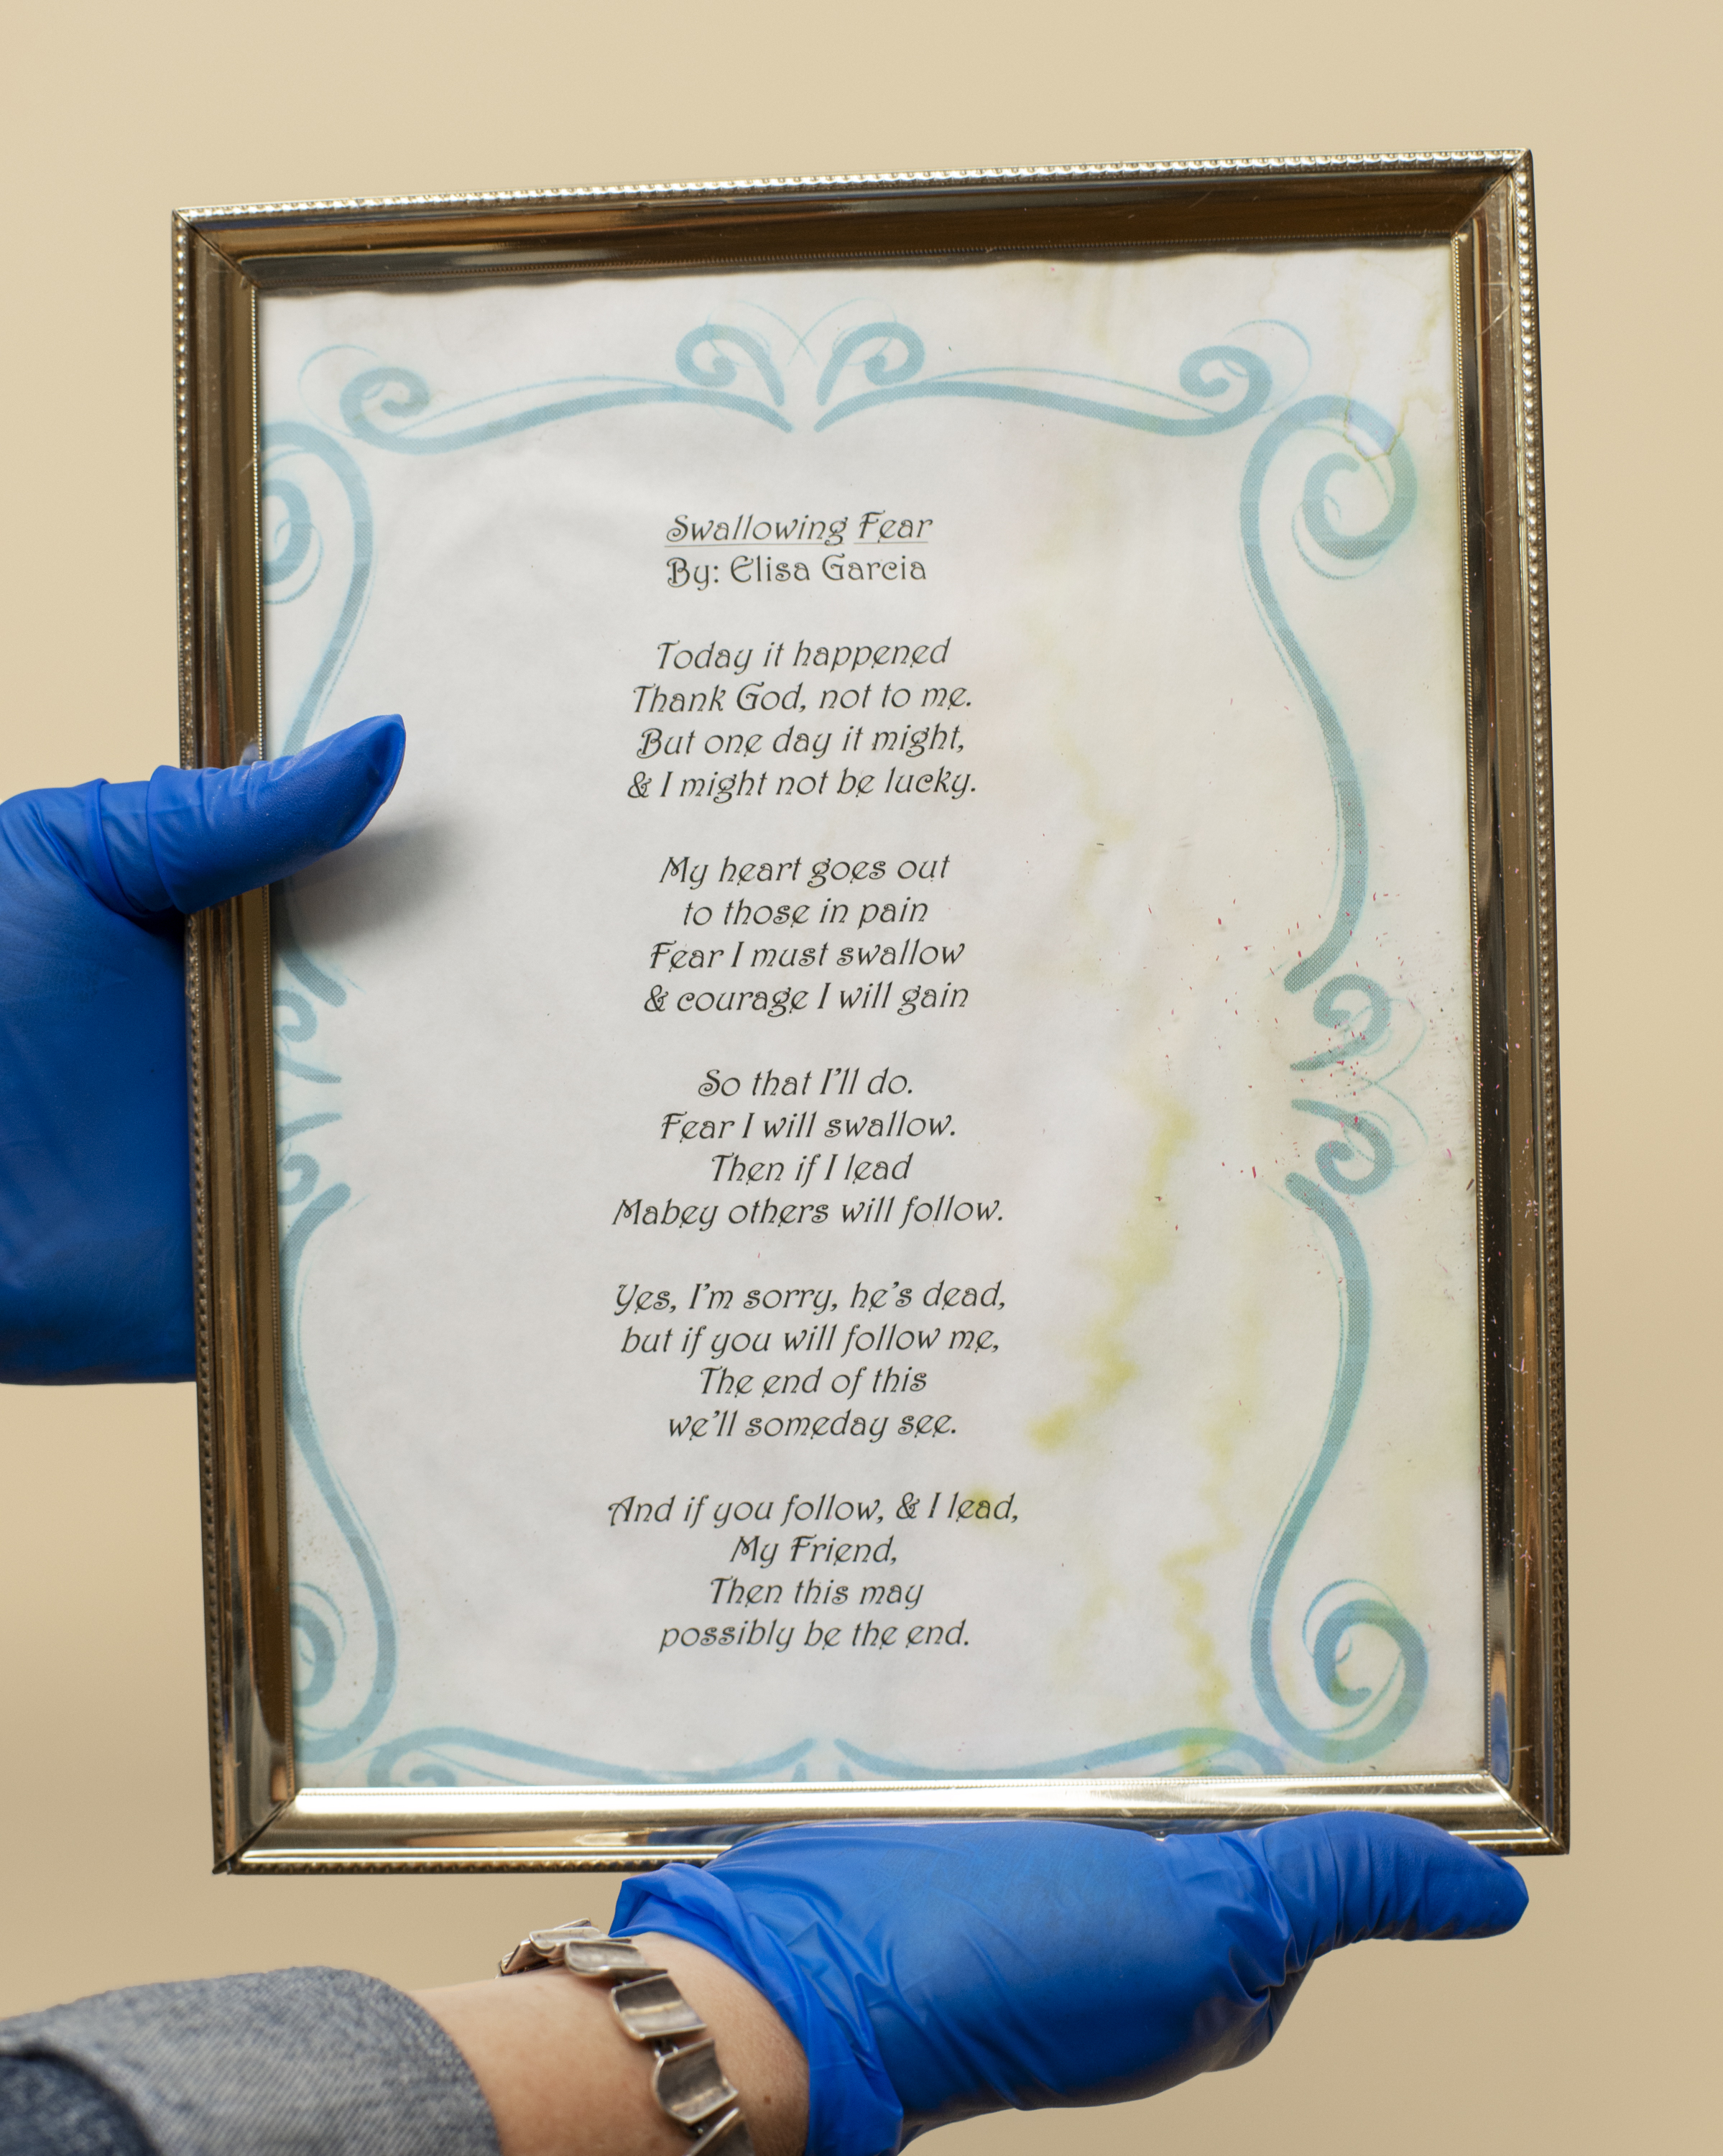 Swallowing Fear
By: Elisa Garcia
Today it happened
Thank God, not to me.
But one day it might,
& I might not be lucky.
My heart goes out
to those in pain
Fear I must swallow
& courage I will gain
So that I'll do.
Fear I will swallow.
Then if I lead
Mabey others will follow.
Yes, I'm sorry, he's dead,
but if you will follow me,
The end of this
we'll someday see.
And if you follow, & I lead,
My Friend,
Then this may
possibly be the end.